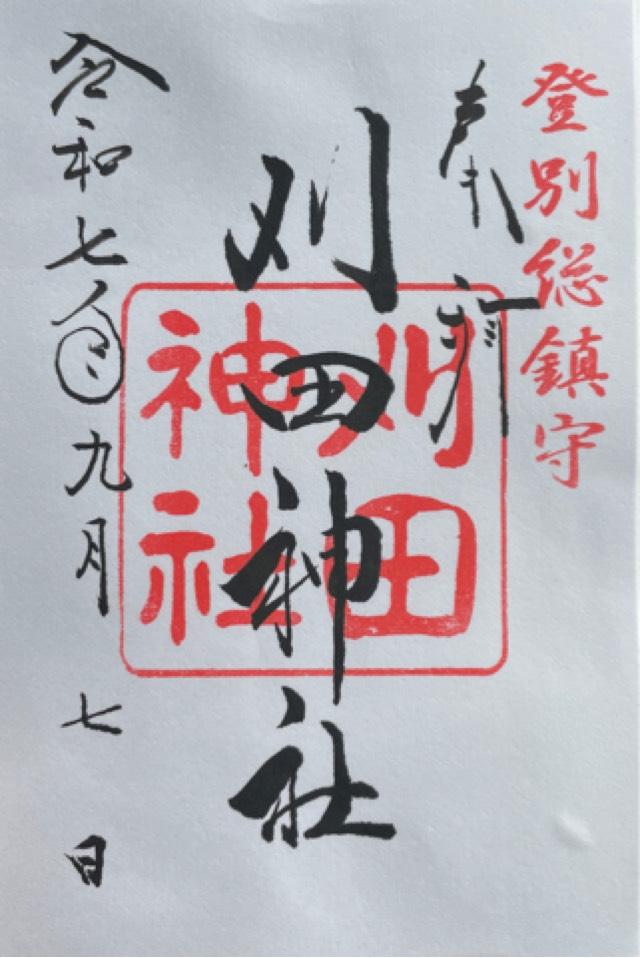 登別総鎮守
奉拝
刈田神社
刈田
神社
令和七年九月七日